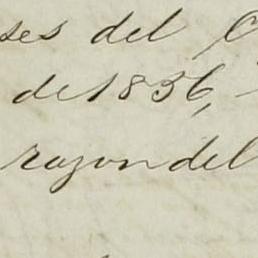 ses del
de 1836,
razon del